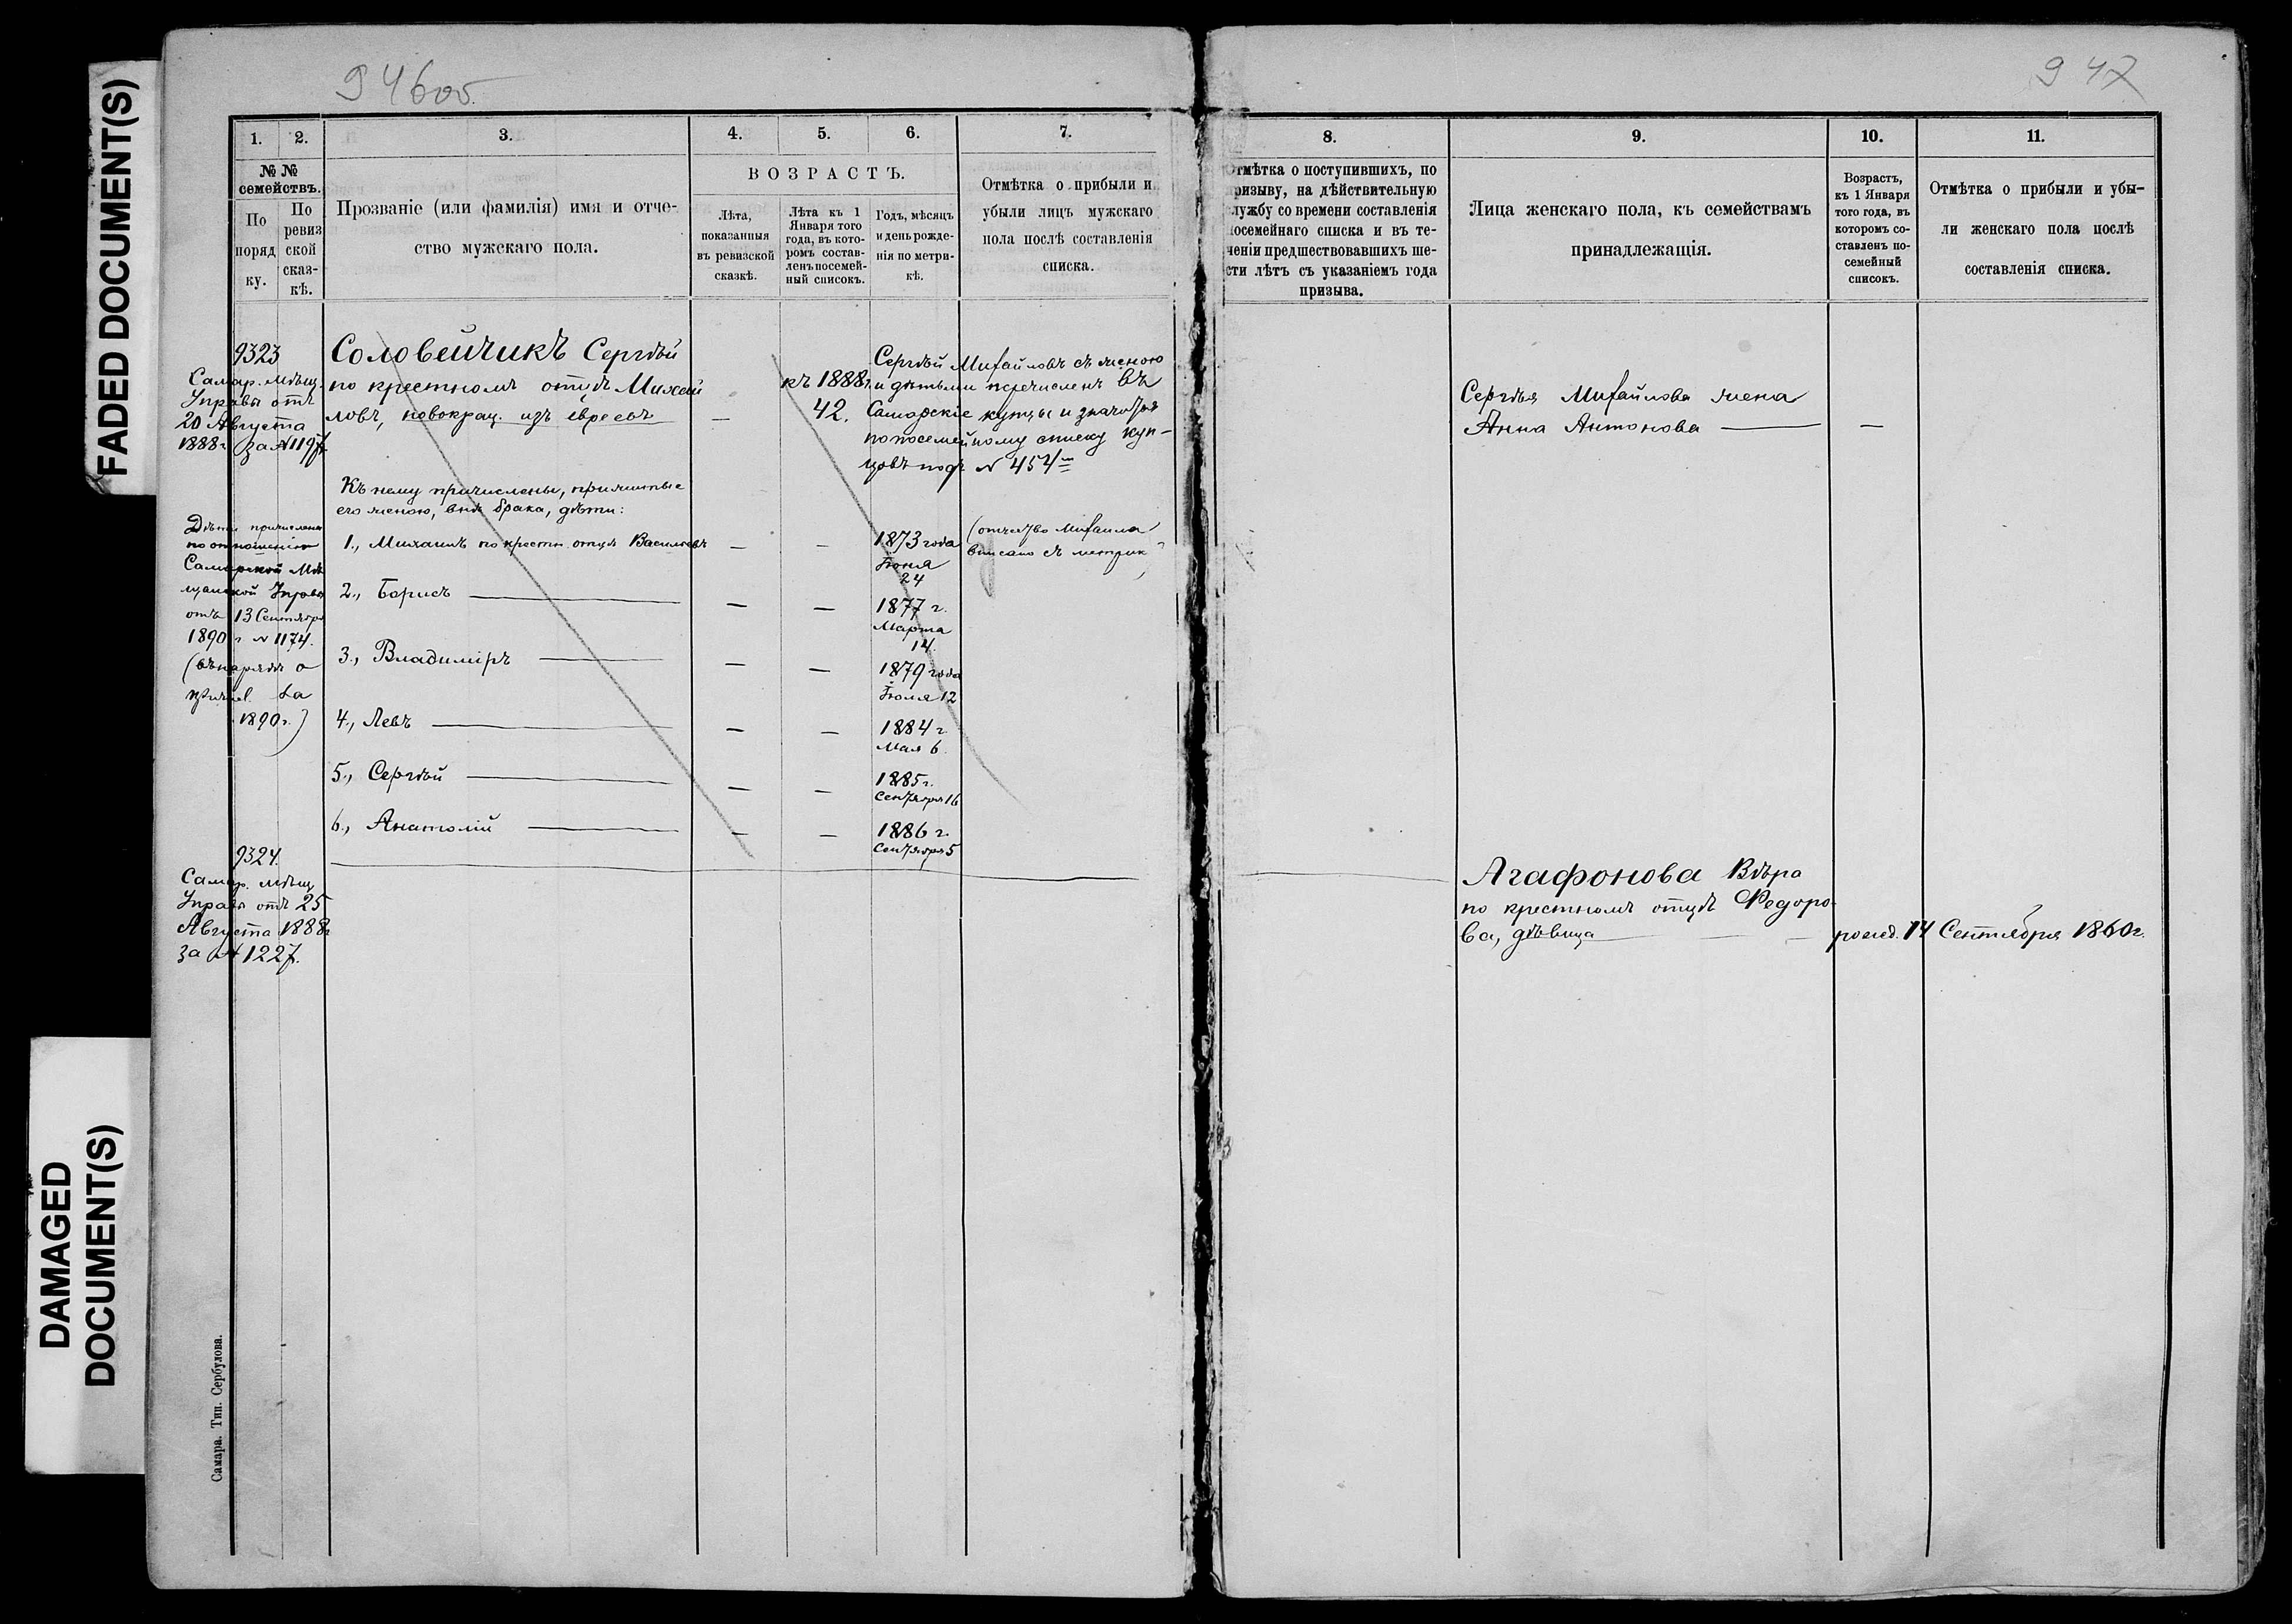 FADED DOCUMENT(S)
DAMAGED
DOCUMENT(S)
946об.
1.
2.
3.
4.
5.
6.
7.
№ №
семействъ.
По
поряд
ку.
По
ревиз
ской
сказ-
кѣ.
Прозваніе (или фамилія) имя и отче-
ство мужскаго пола.
ВОЗРАСТЪ.
Лѣта,
показанныя
въ ревизской
сказкѣ.
Лѣта къ 1
Января того
года, въ кото-
ромъ состав-
ленъ посемей-
ный списокъ.
Годъ, мѣсяцъ
и день рожде-
нія по метри-
кѣ.
Отмѣтка о прибыли и
убыли лицъ мужскаго
пола послѣ составленія
списка.
9323
Самар. Мѣщ.
Управы отъ
20 Августа
1888 г. за № 1197.
Соловейчикъ Сергѣй
по крестномъ отцѣ Михай
ловъ, новокрещ. изъ евреевъ
—
къ 1888 г.
42.
Сергѣй Михайловъ съ женою
и дѣтьми перечисленъ въ
Самарскіе купцы и значатся
по посемейному списку куп-
цовъ подъ № 454
Къ нему причислены, прижитые
его женою, внѣ брака, дѣти:
Дѣти причислены
по отношенію
Самарской Мѣ
щанской Управы
отъ 13 Сентября
1890 г № 1174.
(въ нарядѣ о
за
1890 г.)
1., Михаилъ по крестн. отцѣ Васильевъ — —
1873 года
Іюня
24
(отчество Михаила
вписано съ метрик
2., Борисъ — — —
1877 г.
Марта
14.
3., Владиміръ — — —
1879 года
Іюля 12
4., Левъ — — —
1884 г
Мая 6.
5., Сергѣй — — —
1885 г.
Сентября 16
6., Анатолій — — —
1886 г.
Сентября 5
9324.
Самар. Мѣщ.
Управы отъ 25
Августа 1888 г
за № 1227.
Самара. Тип. Сербулова.
947
8.
9.
10.
11.
Отмѣтка о поступившихъ, по
призыву, на дѣйствительную
лужбу со времени составленія
посемейнаго списка и въ те-
ченіи предшествовавшихъ ше-
сти лѣтъ съ указаніемъ года
призыва.
Лица женскаго пола, къ семействамъ
принадлежащія.
Возрастъ,
къ 1 Января
того года, въ
которомъ со-
ставленъ по-
семейный
списокъ.
Отмѣтка о прибыли и убы-
ли женскаго пола послѣ
составленія списка.
Сергѣя Михайлова жена
Анна Антонова — —
Агафонова Вѣра
по крестномъ отцѣ Федоро-
ва, дѣвица — — рожд. 14 Сентября 1860 г.